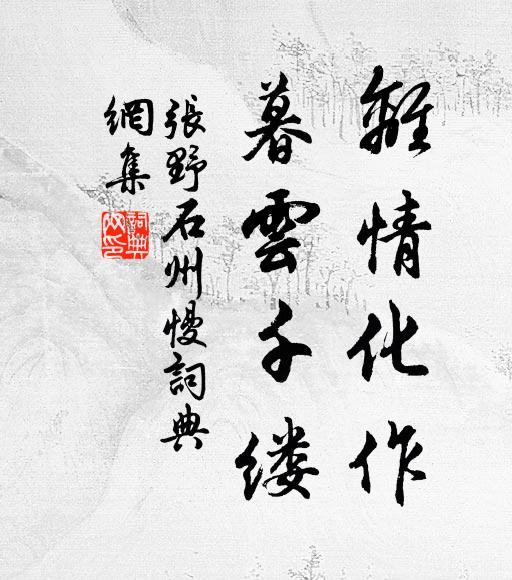 離情化作
暮雲千缕
張野石州慢詞典
網集
詞典